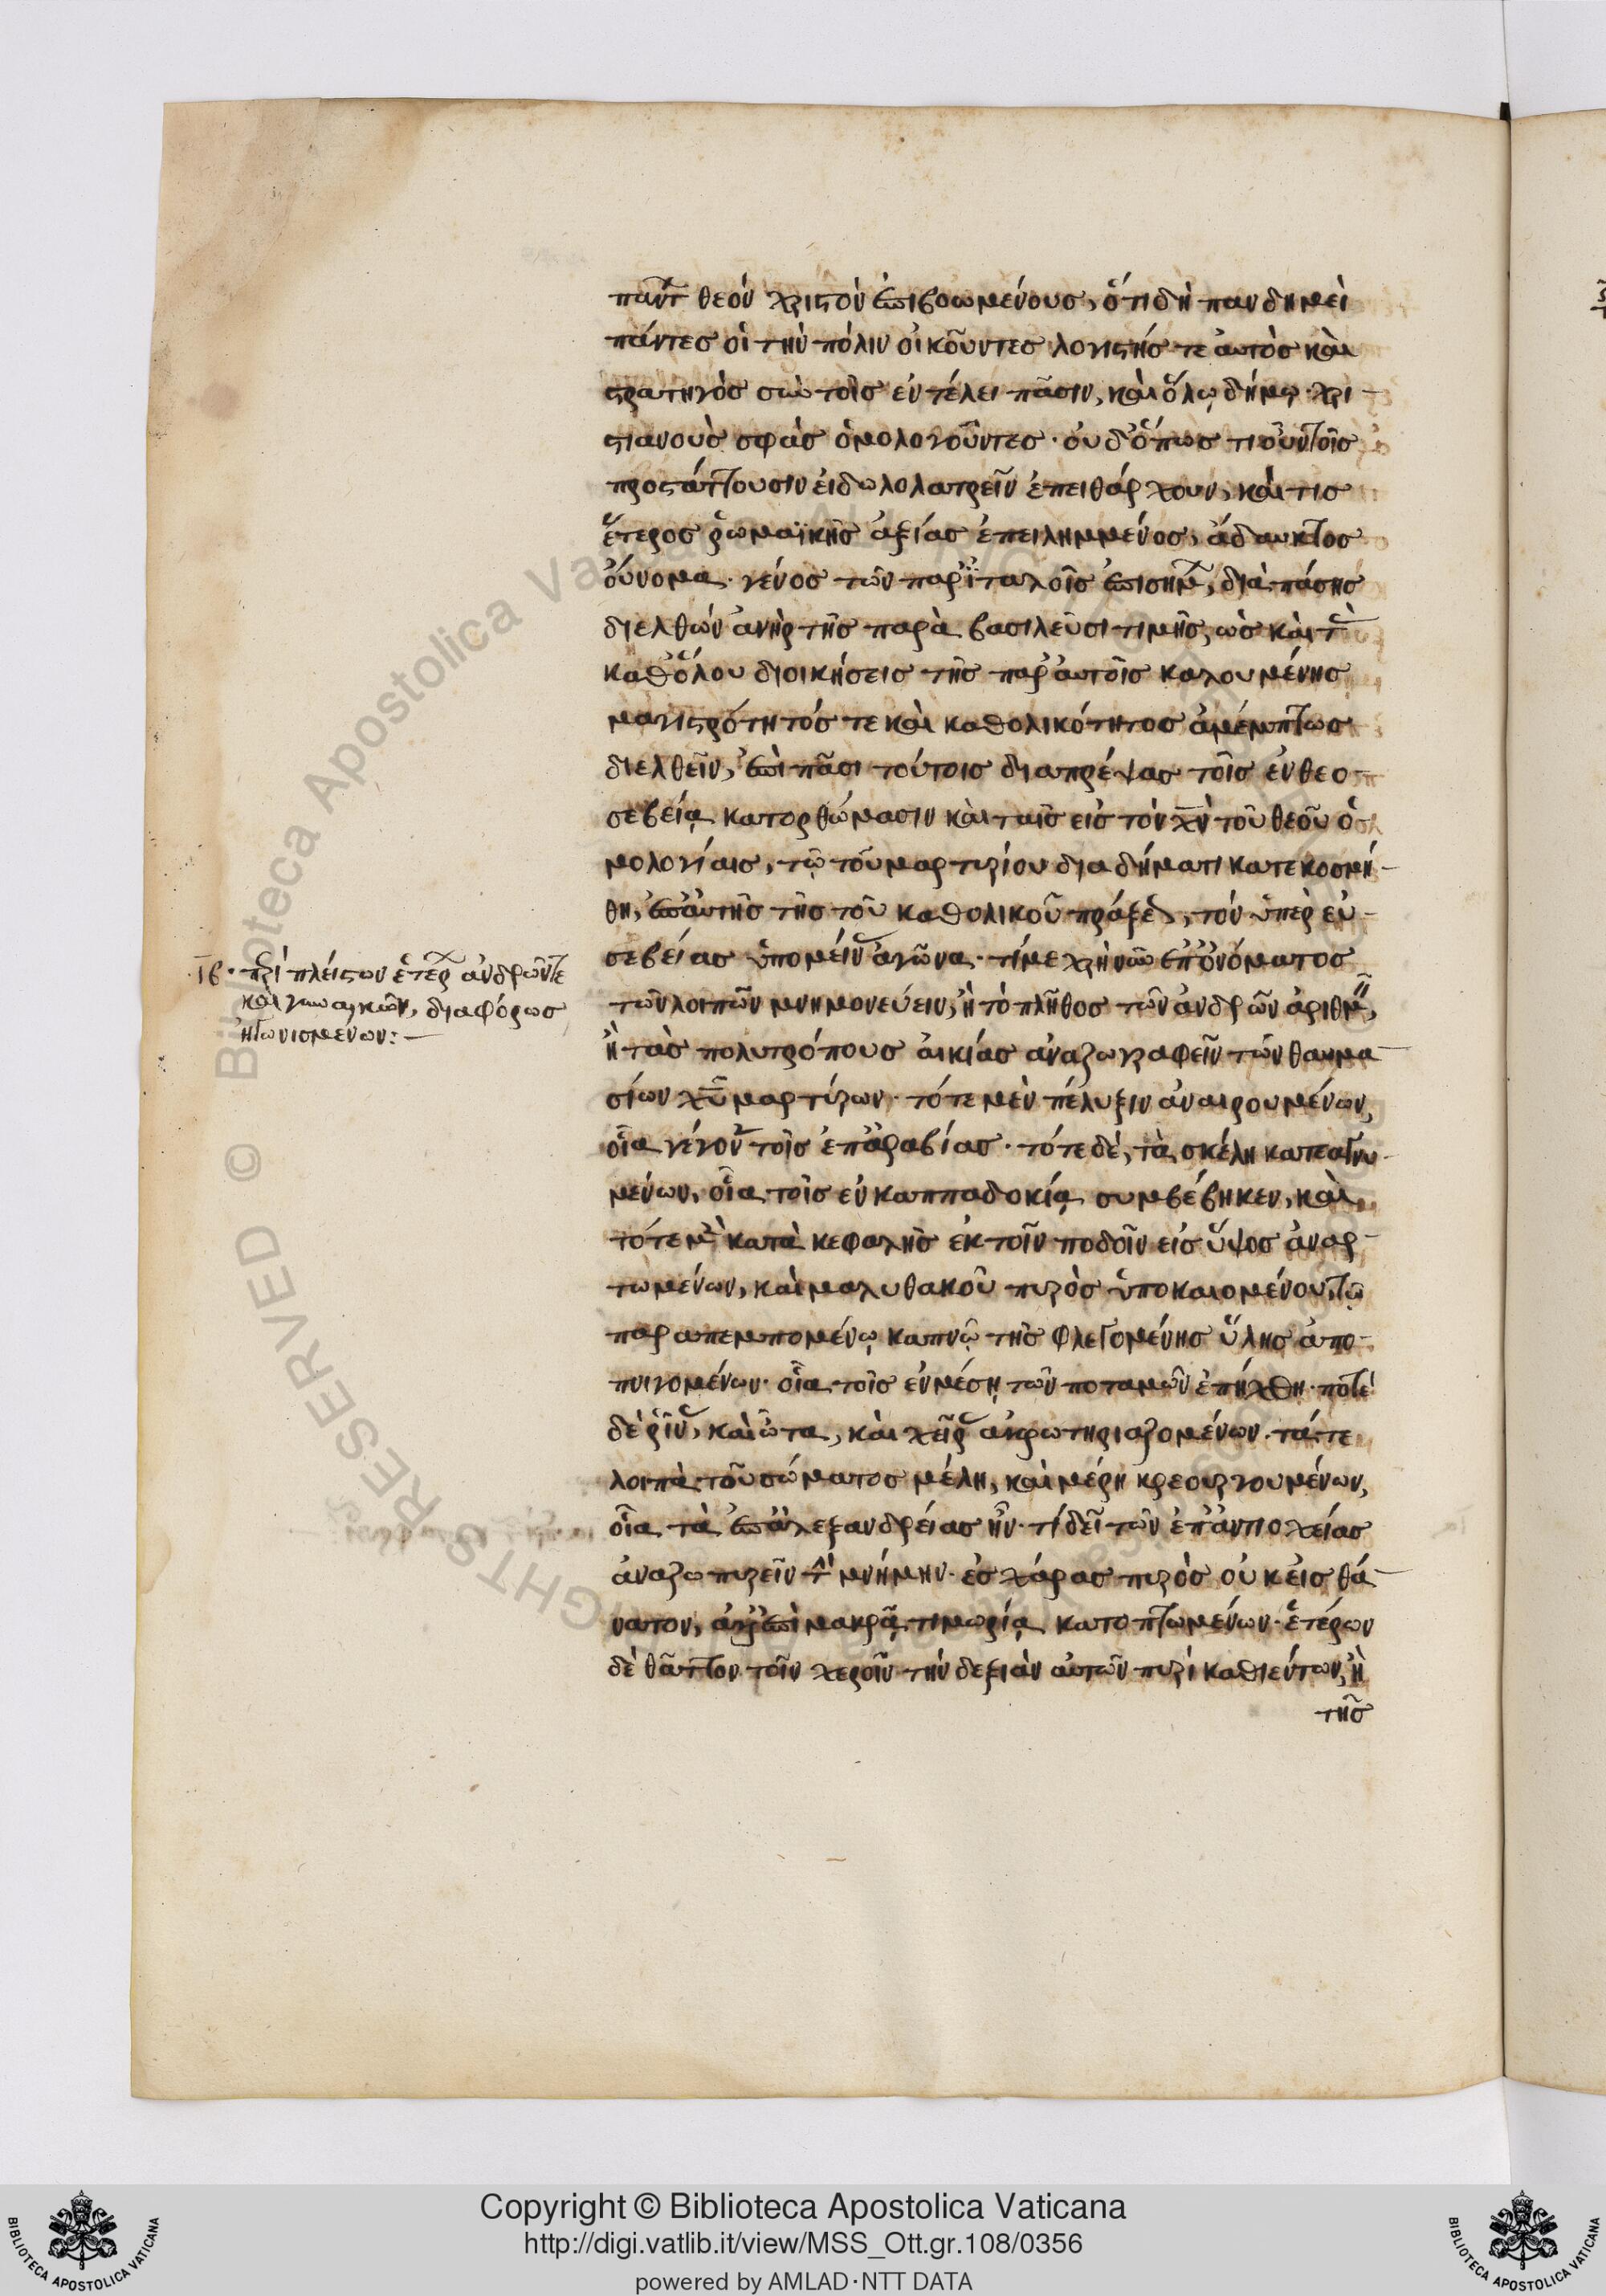 πάντ θεὸν χριστὸν ἐπιβοωμένους, ὅτι δὴ πανδημεὶ
πάντες οἱ τὴν πόλιν οἰκοῦντες λογιστής τε αὐτὸς καὶ
στρατηγὸς σὺν τοῖς ἐν τέλει πᾶσιν, καὶ ὅλῳ δήμῳ χρι-
στιανοὺς σφᾶς ὁμολογοῦντες· οὐδ' ὅπως τι οὖν τοῖς
προστάττουσιν εἰδωλολατρεῖν ἐπειθάρχουν, καί τις
ἕτερος ῥωμαϊκῆς ἀξίας ἐπειλημμένος, ἄδαυκτος
οὔνομα· γένος τῶν παρ' ἰταλοῖς ἐπισήμ, διὰ πάσης
διελθὼν ἀνὴρ τῆς παρὰ βασιλεῦσι τιμῆς, ὡς καὶ τ
καθόλου διοικήσεις τῆς παρ' αὐτοῖς καλουμένης
μαγιστρότητός τε καὶ καθολικότητος ἀμέμπτως
διελθεῖν, ἐπὶ πᾶσι τούτοις διαπρέψας τοῖς ἐν θεο-
σεβείᾳ κατορθώμασιν καὶ ταῖς εἰς τὸν χν τοῦ θεοῦ ὁ-
μολογίαις, τῷ τοῦ μαρτυρίου διαδήματι κατεκοσμή-
θη, ἐπ' αὐτῆς τῆς τοῦ καθολικοῦ πράξε, τὸν ὑπὲρ εὐ-
σεβείας ὑπομείν ἀγῶνα· τί με χρὴ νῦν ἐπ' ὀνόματος
ιβ· περὶ πλείστων ἑτέρ ἀνδρῶν τε
καὶ γυναικῶν, διαφόρως
ἠγωνισμένων:—
τῶν λοιπῶν μνημονεύειν, ἢ τὸ πλῆθος τῶν ἀνδρῶν ἀριθμ,
ἢ τὰς πολυτρόπους αἰκίας ἀναζωγραφεῖν τῶν θαυμα-
σίων χυ μαρτύρων· τότε μὲν πέλυξιν ἀναιρουμένων,
οἷα γέγον τοῖς ἐπ' ἀραβίας· τότε δὲ, τὰ σκέλη κατεαγνυ-
μένων, οἷα τοῖς ἐν καππαδοκίᾳ συμβέβηκεν, καὶ
τότε μὲν κατὰ κεφαλῆς ἐκ τοῖν ποδοῖν εἰς ὕψος ἀναρ-
τωμένων, καὶ μαλυθακοῦ πυρὸς ὑποκαιομένου, τῷ
παραπεμπομένῳ καπνῷ τῆς φλεγομένης ὕλης ἀπο-
πνιγομένων· οἷα τοῖς ἐν μέσῃ τῶν ποταμῶν ἐπήχθη· ποτὲ
δὲ ῥῖν, καὶ ὦτα, καὶ χεῖρ ἀκρωτηριαζομένων· τά τε
λοιπὰ τοῦ σώματος μέλη, καὶ μέρη κρεουργουμένων,
οἷα τὰ ἐπ' ἀλεξανδρείας ἦν· τί δεῖ τῶν ἐπ' ἀντιοχείας
ἀναζωπυρεῖν τὴν μνήμην· ἐσχάρας πυρὸς οὐκ εἰς θά-
νατον, ἀλλ' ἐπὶ μακρᾷ τιμωρίᾳ κατοπτωμένων· ἑτέρων
δὲ θᾶττον τοῖν χεροῖν τὴν δεξιὰν αὐτῶν πυρὶ καθιέντων, ἢ
τῆς
Copyright © Biblioteca Apostolica Vaticana
http://digi.vatlib.it/view/MSS_Ott.gr.108/0356
powered by AMLAD·NTT DATA